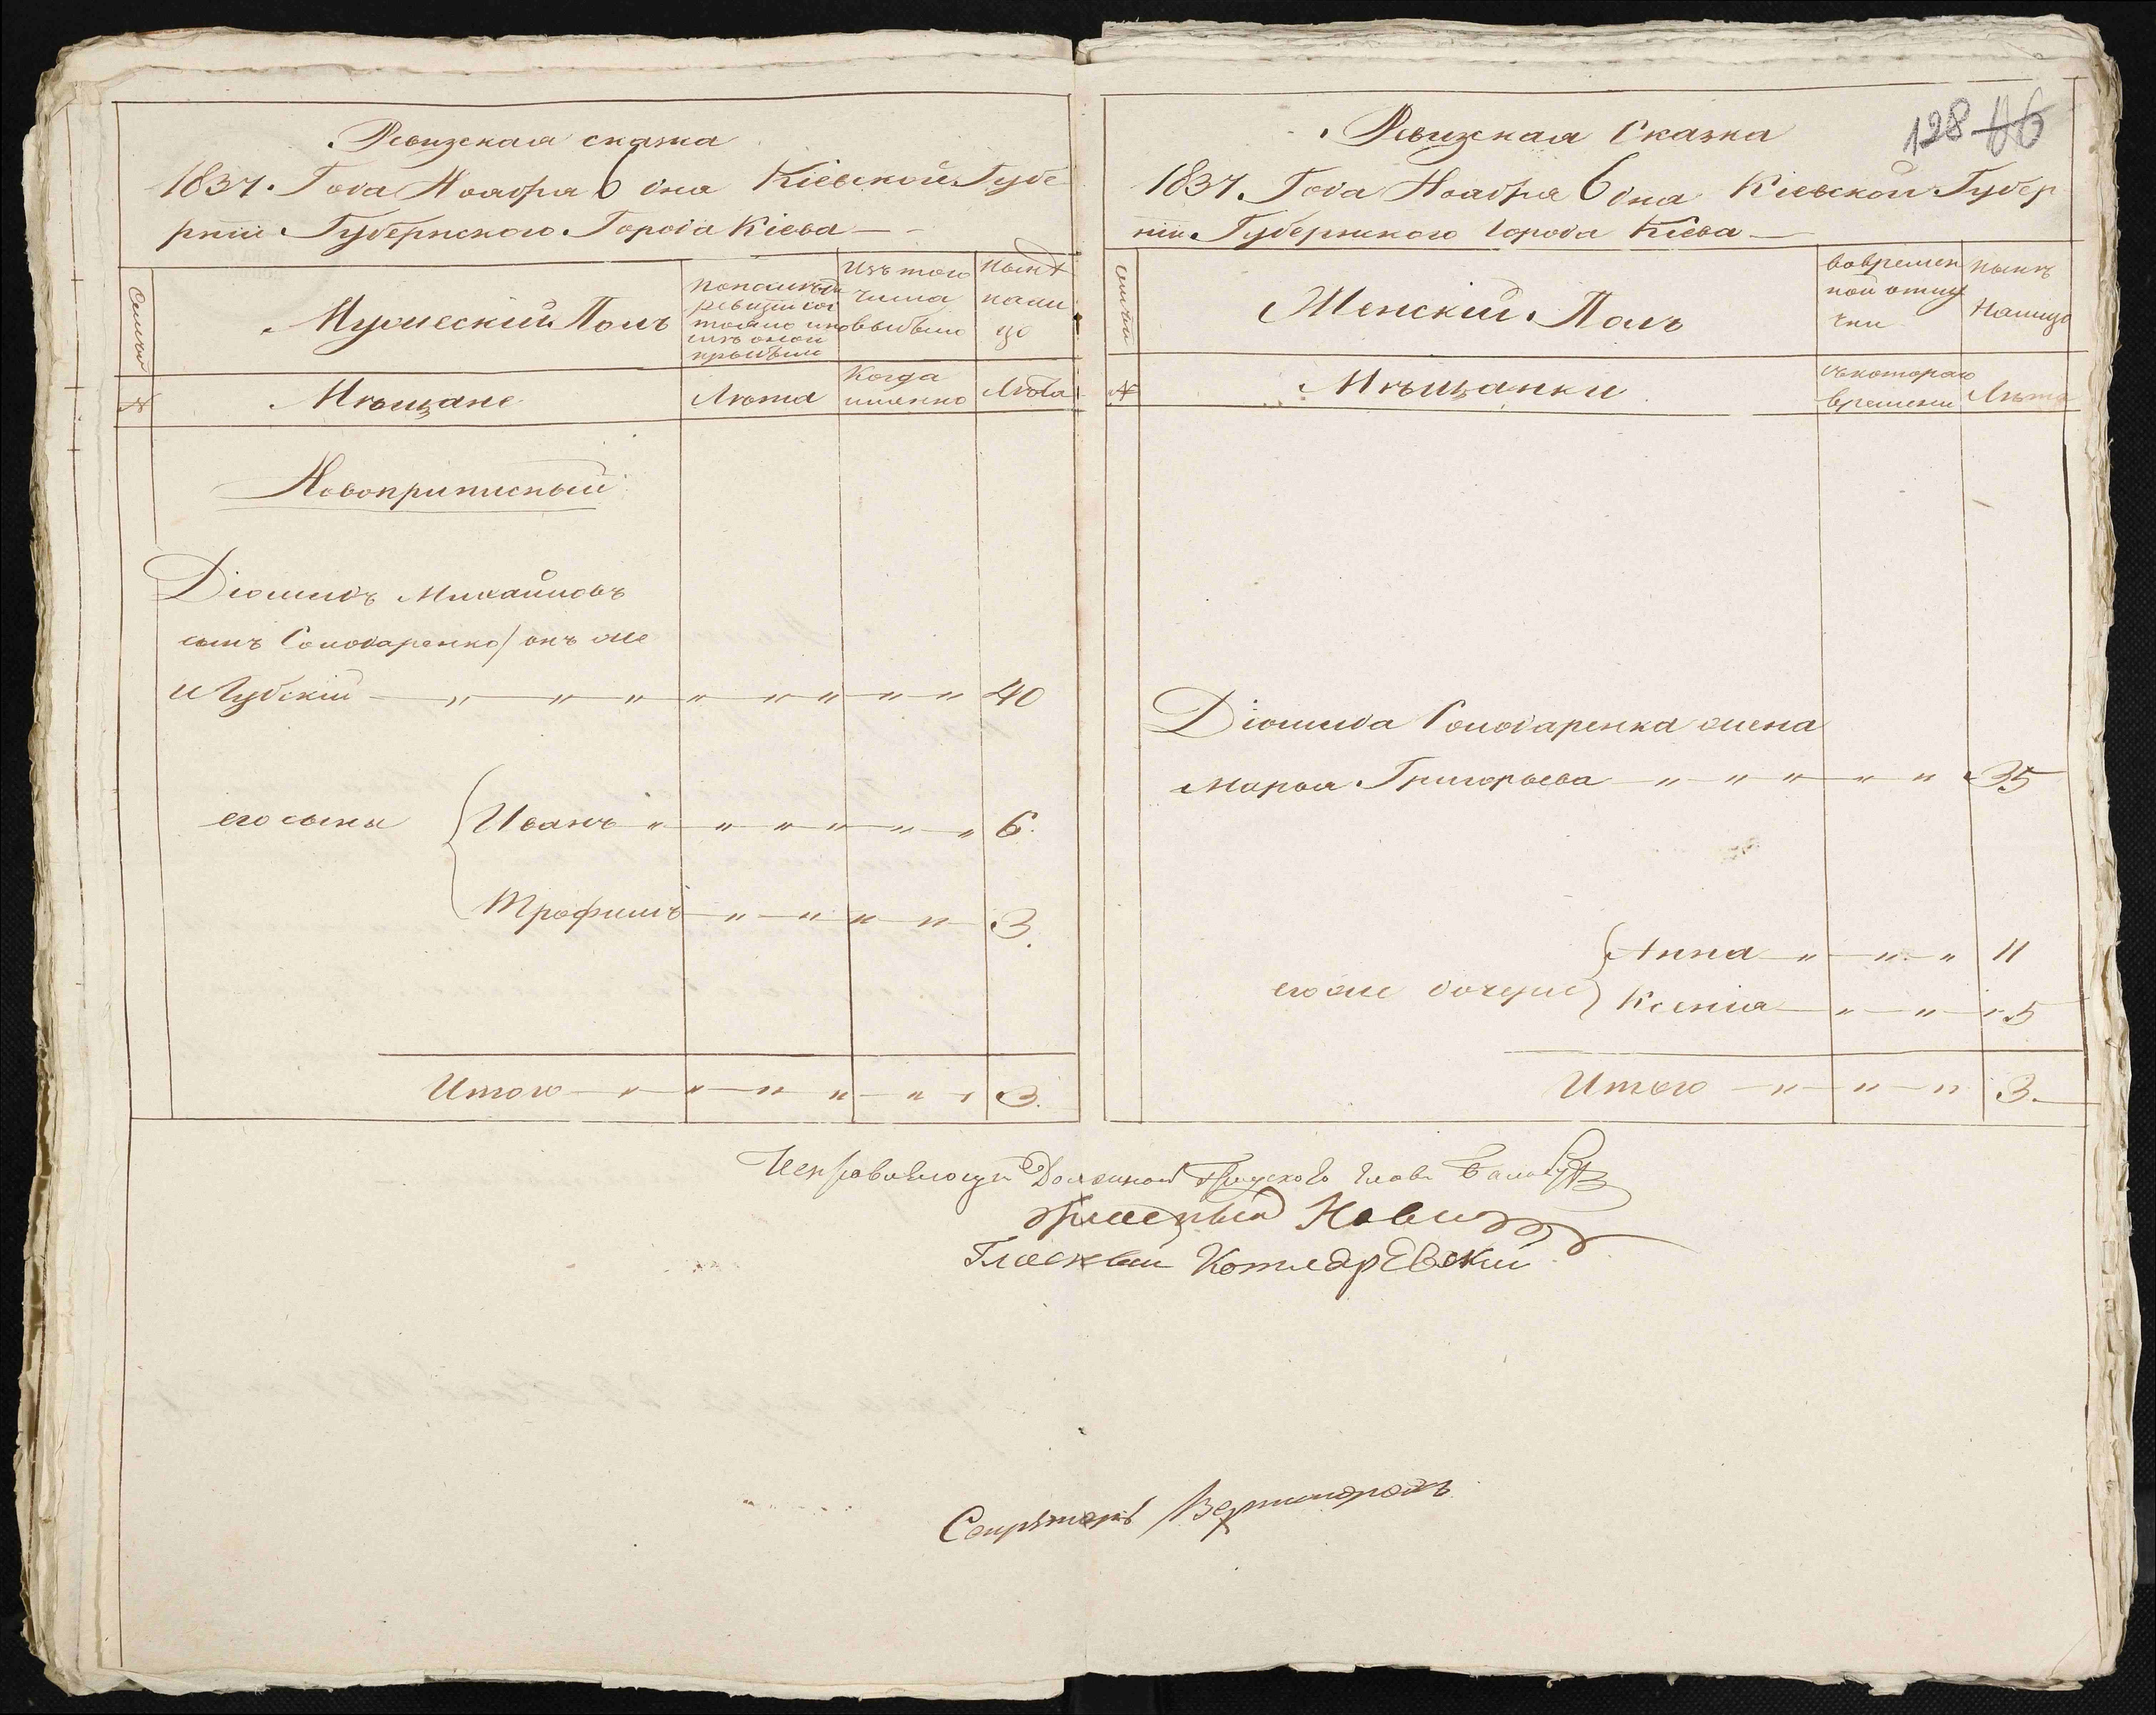 Ревизская сказка
1837. Года Ноября 6 дня Кіевской Губе
рніи Губернскаго Города Кіева
Семьи
Мужескій Полъ
По последней
ревизіи сос
тояло и по
слѣ оной
прибыло
Изъ того
числа
выбыло
Нынѣ
нали
цо
№
Мѣщане
Лѣта
Когда
именно
Лѣта
Новоприписный
Діомидъ Михайловъ
сынъ Солодаренко / онъ же
и Лубскій — 40
его сыны
Иванъ 6.
Трофимъ 3.
Итого 3.
128
Ревизская Сказка
1837. Года Ноября 6 дня Кіевской Губер
ніи Губернскаго города Кіева
Семьи
Женскій Полъ
во времен
ной отлу
чки
Нынѣ
Налицо
№
Мѣщанки
съ котораго
времени
Лѣта
Діомида Солодаренка жена
Марья Григорьева 35
его же дочери
Анна 11
Ксенія 5
Итого 3.
Исправляющій Должность Градскаго Главы
Гласный
Гласный Котляревскій
Секретарь